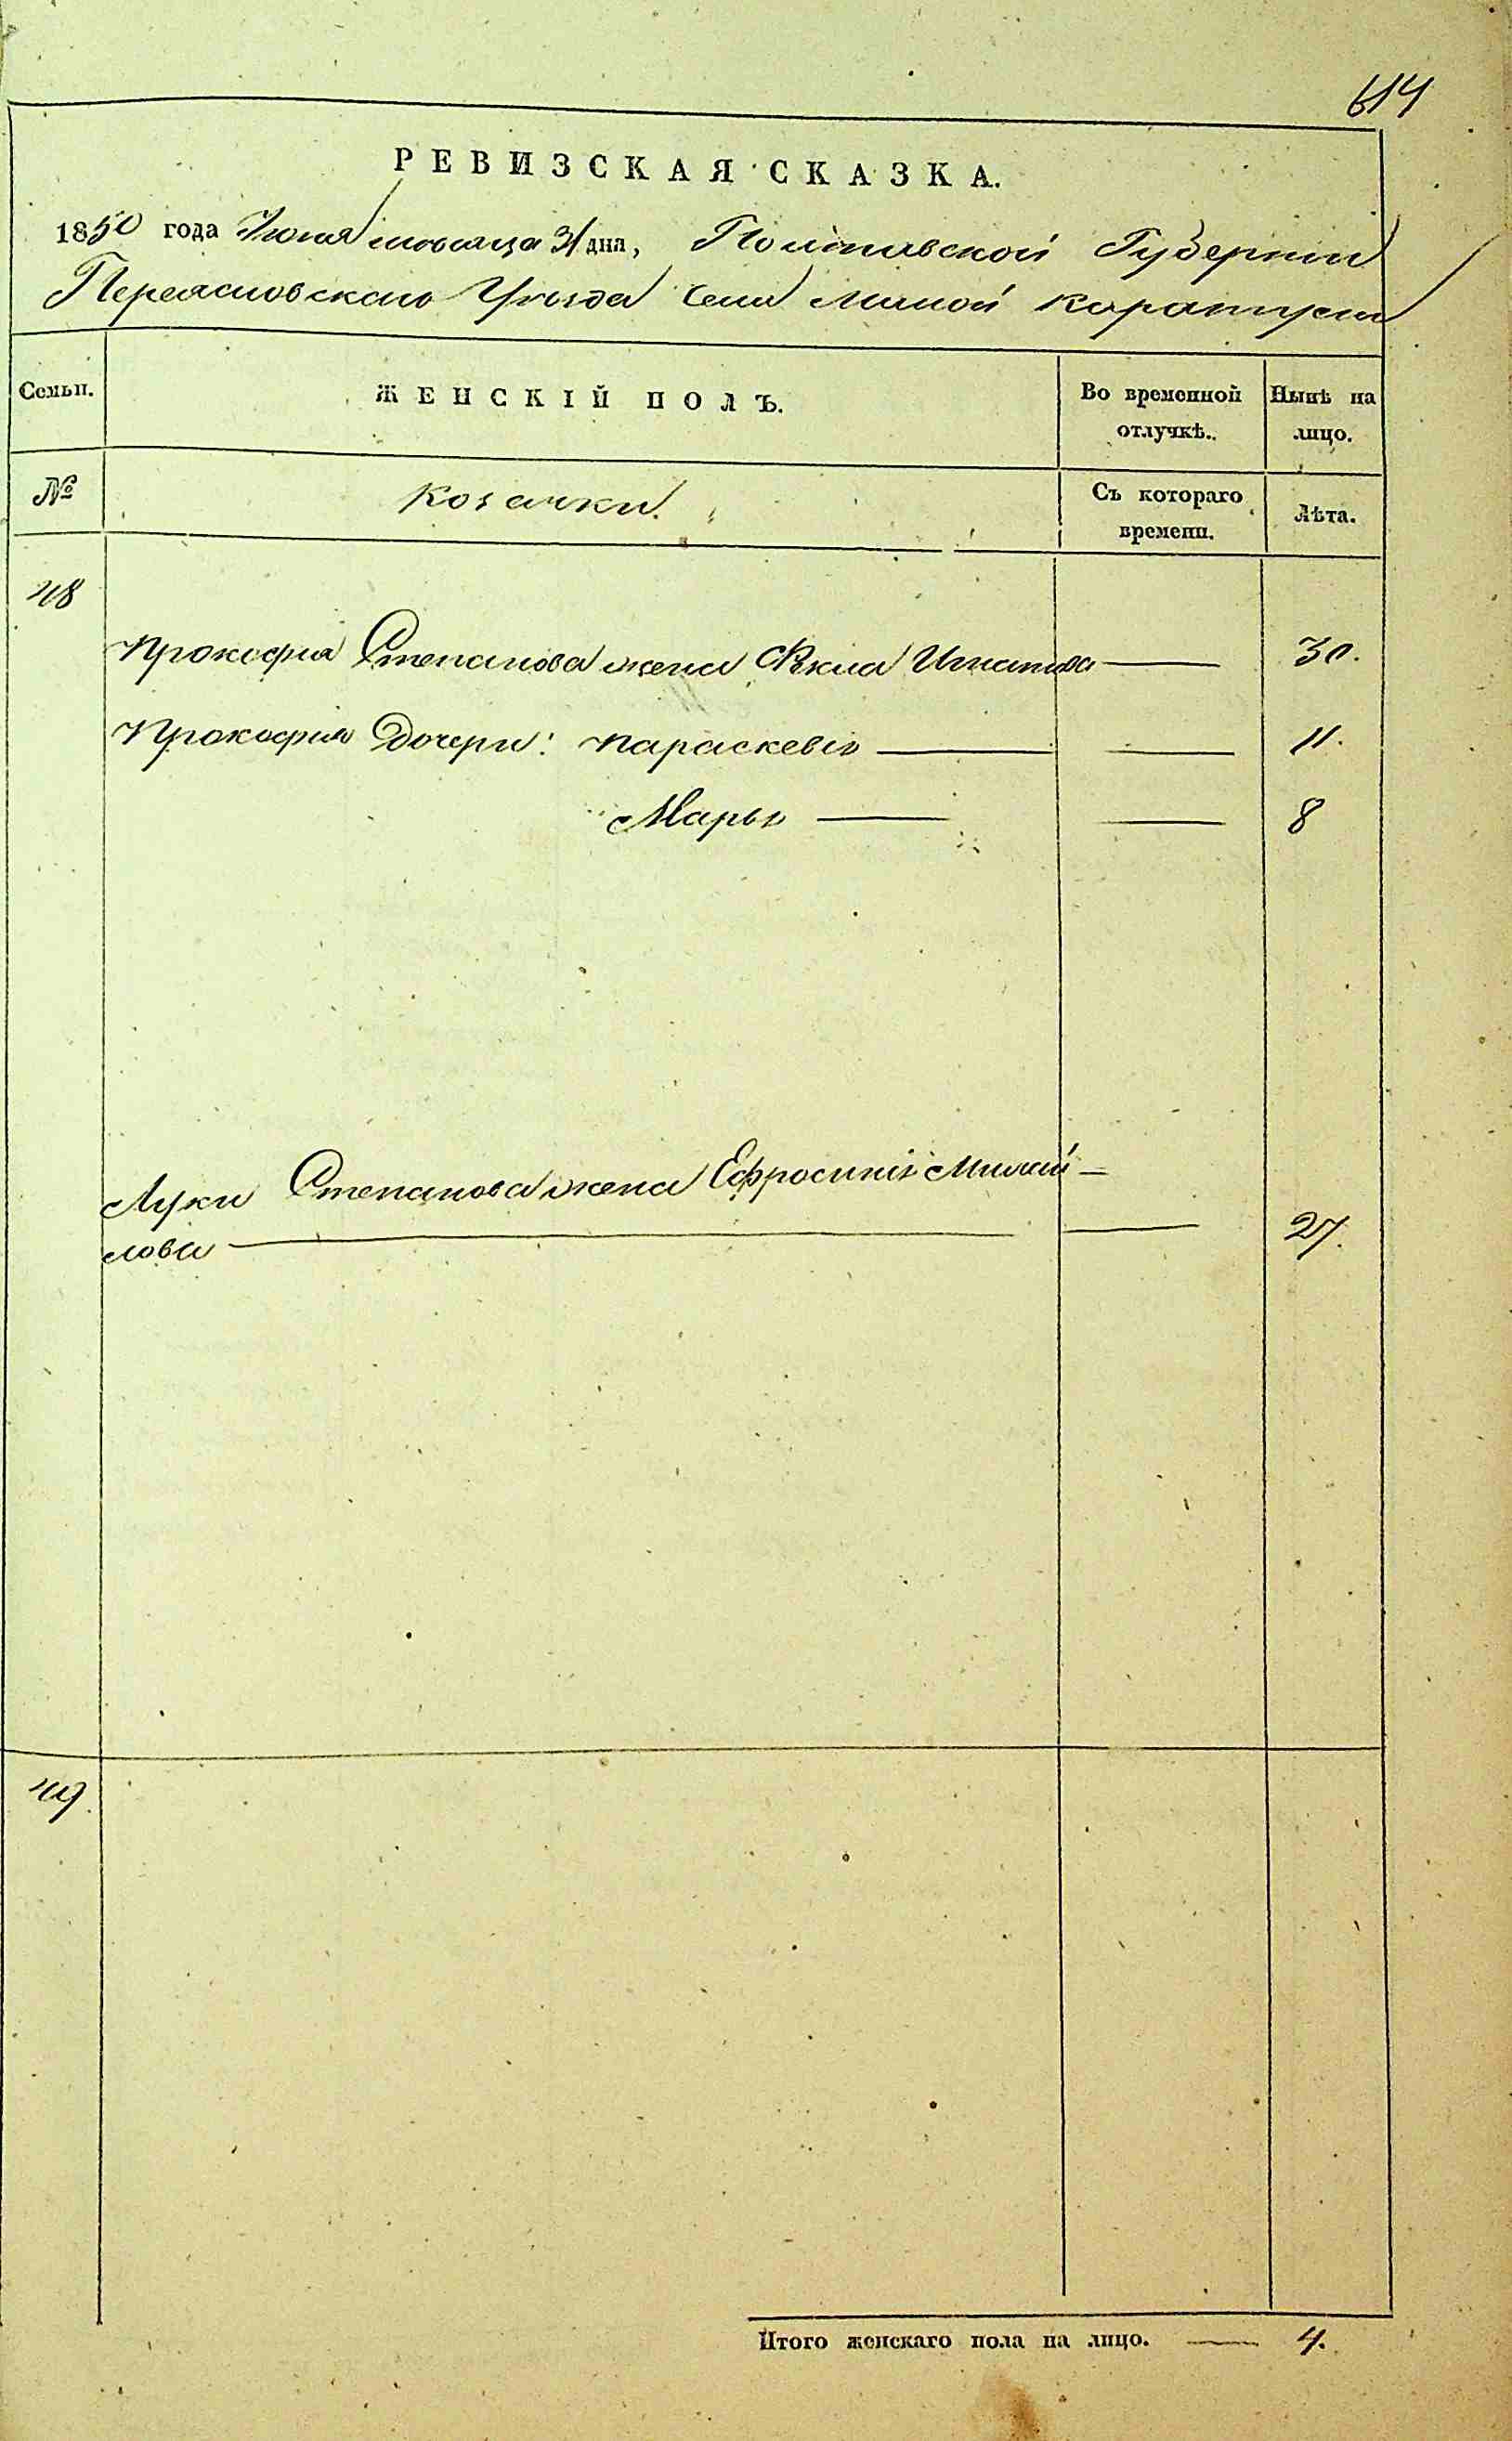 614
РЕВИЗСКАЯ СКАЗКА.
1850 года Іюня мѣсяца 31 дня, Полтавской Губерніи
Переясловскаго Уѣзда Села Малой Каратули
Семьи. ЖЕНСКІЙ ПОЛЪ. Во временной отлучкѣ. Нынѣ на лицо.
№ Козачки. Съ котораго времени. Лѣта.
48
Прокофія Степанова жена Ѳекла Игнатова — 30.
Прокофія дочери: Параскевія — — 11.
Марья — — 8
Луки Степанова жена Ефросинія Михай-
лова — — 27.
49.
Итого женскаго пола на лицо. — 4.